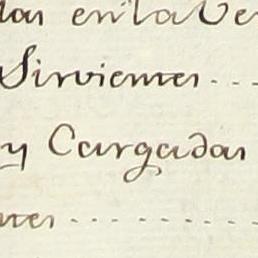 das en la Ve
Sirvientes . . .
y Cargadas
ntes . . . . . . . .